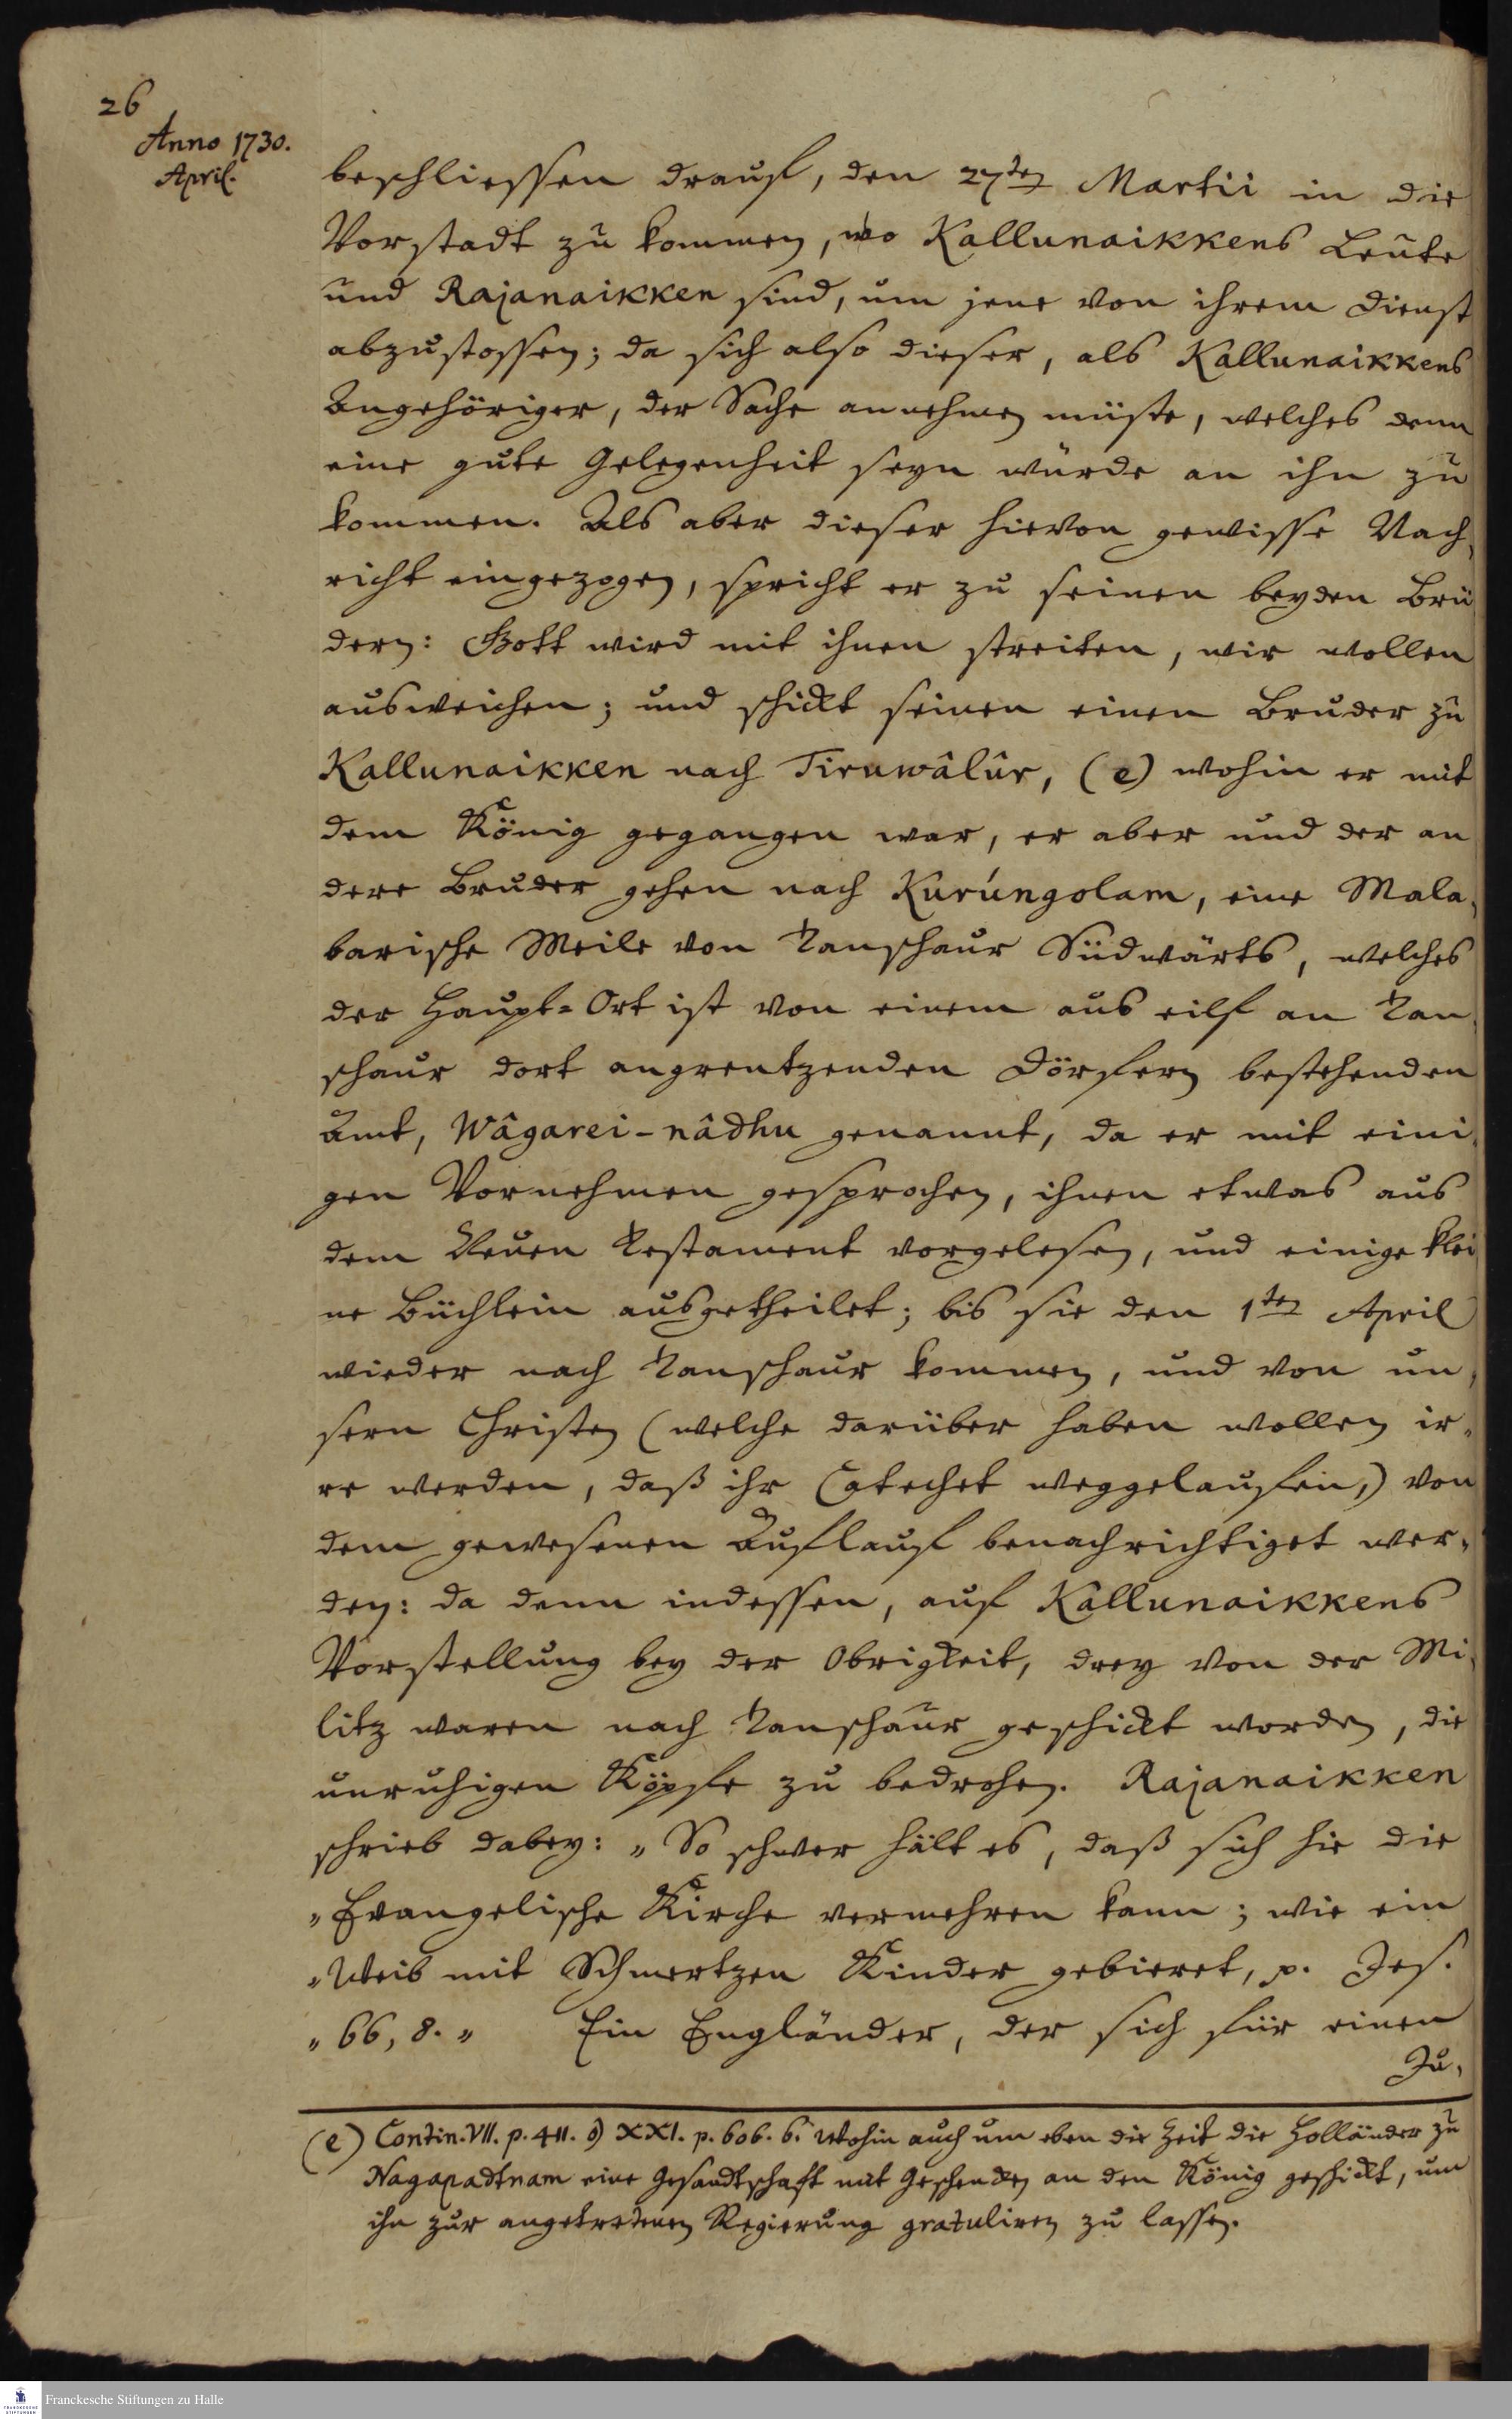 26
Anno 1730.
April.
beschliessen drauf, den 27ten Martii in die
Vorstadt zu kommen, wo Kallunaikkens Leute
und Rajanaikken sind, um jene von ihrem Dienst
abzustossen; da sich also dieser, als Kallunaikkens
Angehöriger, der Sache annehmen müste, welches denn
eine gute Gelegenheit seyn würde an ihn zu
kommen. Als aber dieser hievon gewisse Nach,
richt eingezogen, spricht er zu seinen beyden Brü
dern: Gott wird mit ihnen streiten, wir wollen
ausweichen; und schickt seinen einen Bruder zu
Kallunaikken nach Tiruwâlûr, (e) wohin er mit
dem König gegangen war, er aber und der an
dere Bruder gehen nach Kurúngolam, eine Mala,
barische Meile von Tanschaur Südwärts, welches
der Haupt-Ort ist von einem aus eilf an Tan
schaur dort angrentzenden Dörfern bestehenden
Amt, Wâgarei-nâdhu genannt, da er mit eini,
gen Vornehmen gesprochen, ihnen etwas aus
dem Neuen Testament vorgelesen, und einige klei
ne Büchlein ausgetheilet; bis sie den 1ten April
wieder nach Tanschaur kommen, und von un,
sern Christen (welche darüber haben wollen ir,
re werden, daß ihr Catechet weggelaufen,) von
dem gewesenen Auflauf benachrichtiget wer,
den: da denn indessen, auf Kallunaikkens
Vorstellung bey der Obrigkeit, drey von der Mi,
litz waren nach Tanschaur geschickt worden, die
unruhigen Köpfe zu bedrohen. Rajanaikken
schrieb dabey: „So schwer hält es, daß sich hie die
„Evangelische Kirche vermehren kann; wie ein
„Weib mit Schmertzen Kinder gebieret, p. Jes.
„66, 8.„ Ein Engländer, der sich für einen
Ju,
(e) Contin. VII. p. 411. 9) XXI. p. 606. 6. Wohin auch um eben die Zeit die Holländer zu
Nagapadtnam eine Gesandtschaft mit Geschencken an den König geschickt, um
ihn zur angetretenen Regierung gratuliren zu lassen.
Franckesche Stiftungen zu Halle